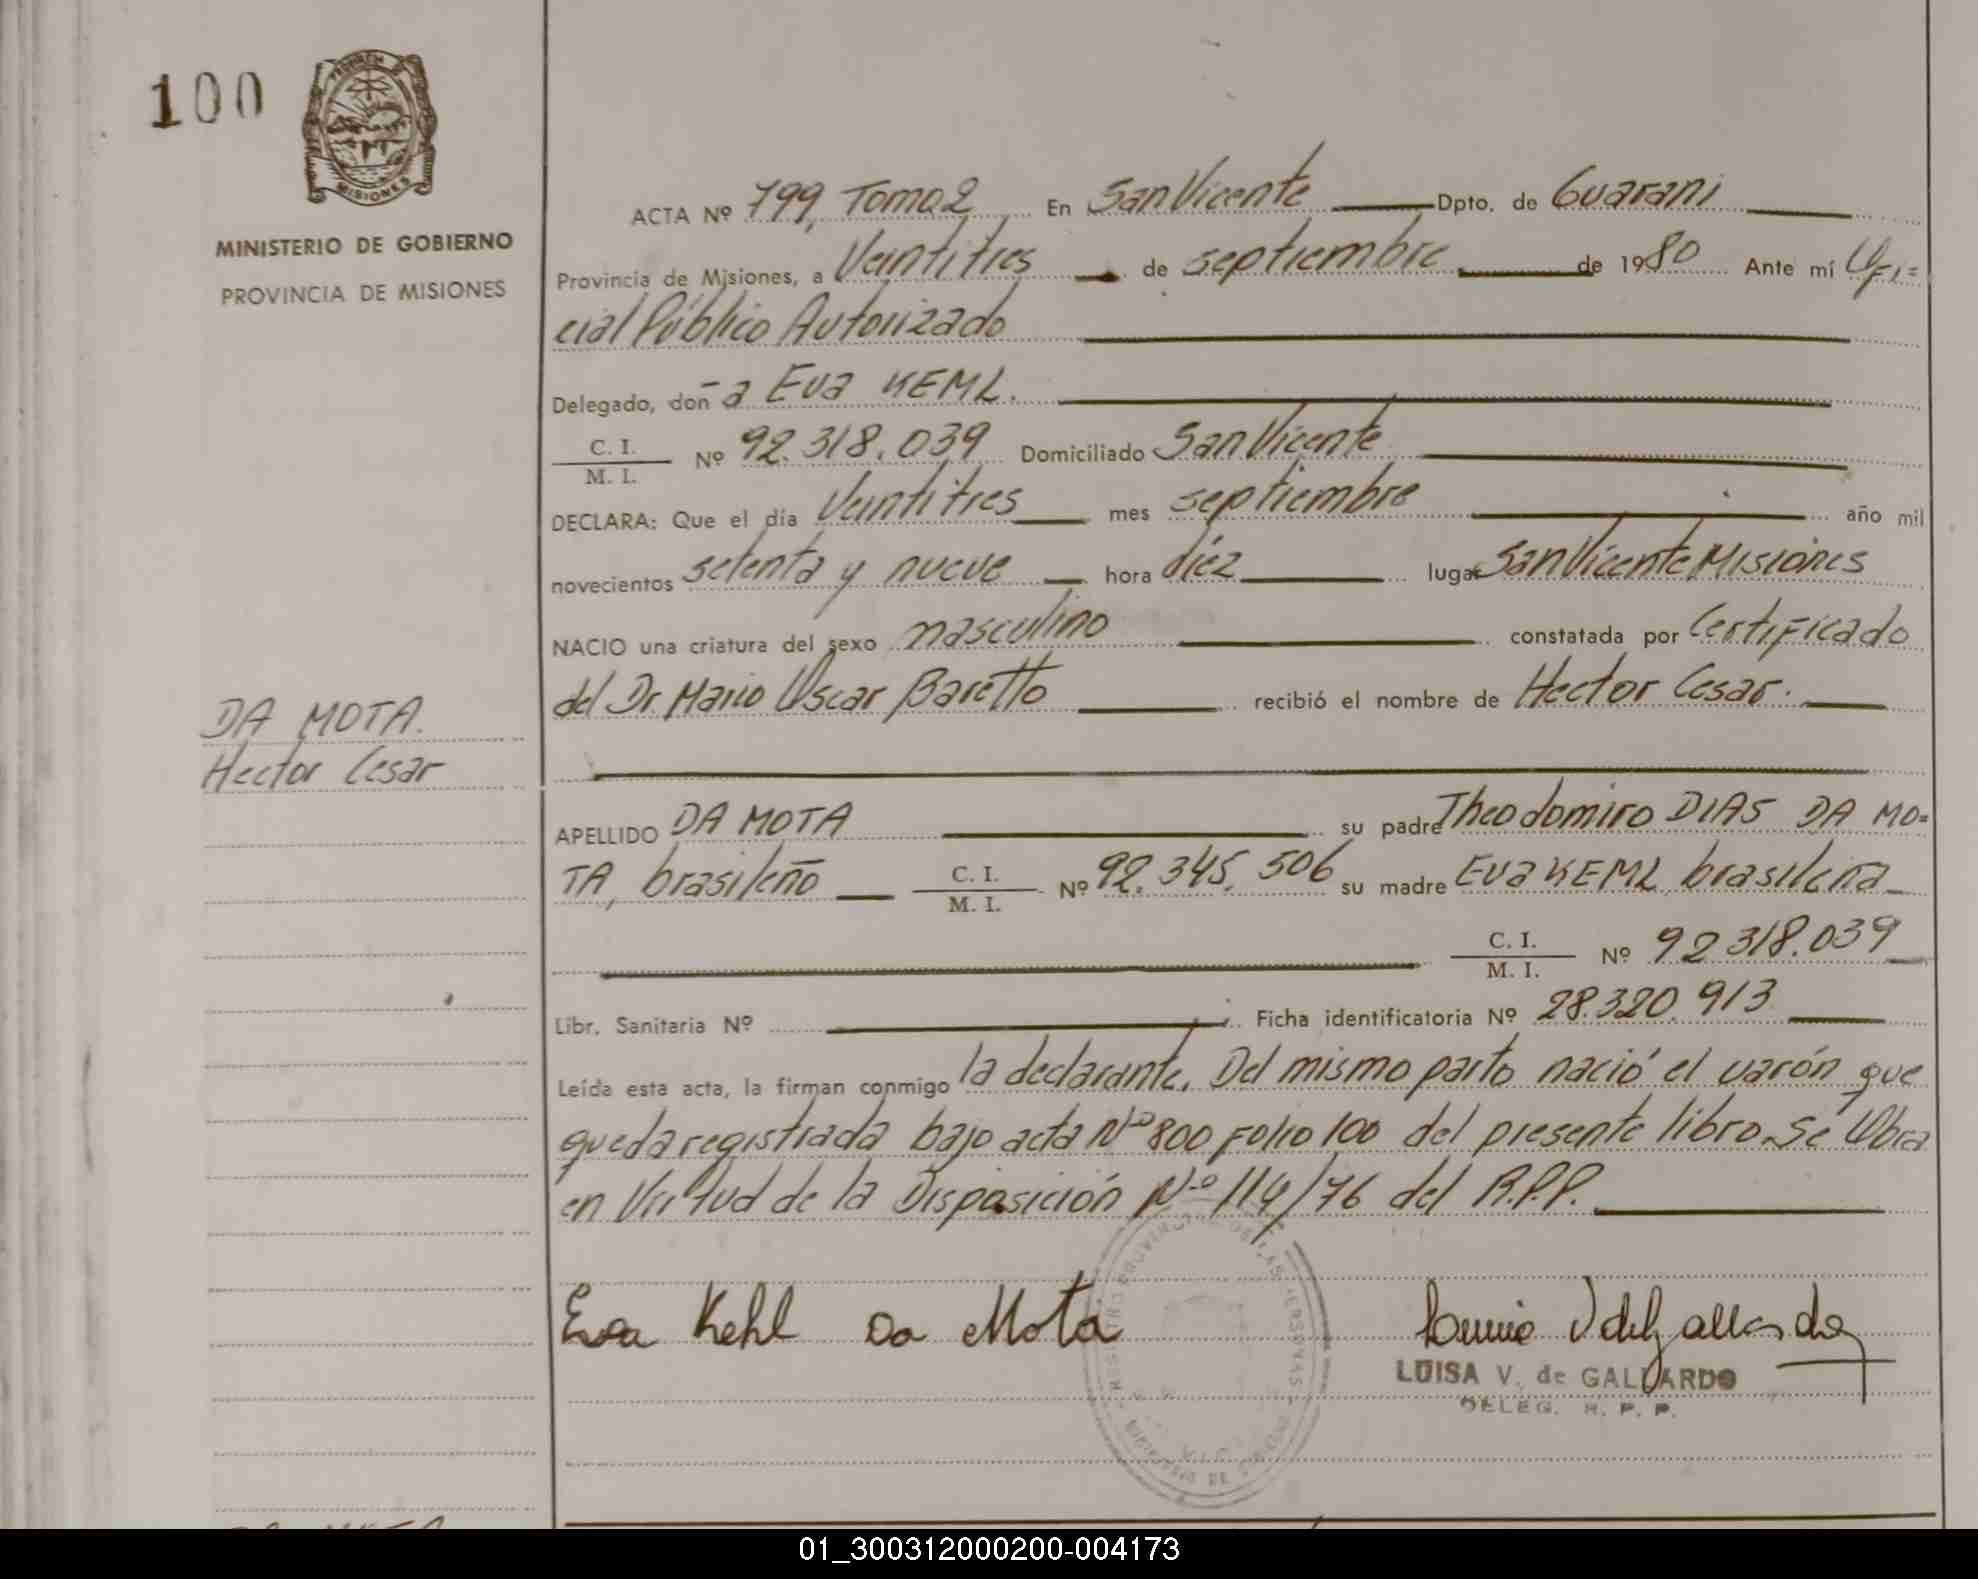 100
PROVINCIA DE
MISIONES
MINISTERIO DE GOBIERNO
PROVINCIA DE MISIONES
ACTA Nº 799, Tomo 2 En San Vicente Dpto. de Guarani
Provincia de Misiones, a Veintitres de septiembre de 1980 Ante mí Ofi=
cial Público Autorizado
Delegado, doña Eva KEML.
C. I.
M. I.
Nº 92.318.039 Domiciliado San Vicente
DECLARA: Que el día Veintitres mes septiembre año mil
novecientos setenta y nueve hora diez lugar San Vicente Misiones
NACIO una criatura del sexo masculino constatada por Certificado
del Dr. Mario Oscar Baretto recibió el nombre de Hector Cesar.
DA MOTA.
Hector Cesar
APELLIDO DA MOTA su padre Theodomiro DIAS DA MO=
TA, brasileño C. I. M. I. Nº 92.345.506 su madre Eva KEML brasileña
C. I.
M. I.
Nº 92 318.039
Libr. Sanitaria Nº Ficha identificatoria Nº 28.320.913
Leída esta acta, la firman conmigo la declarante. Del mismo parto nació el varón que
queda registrada bajo acta Nº 800 Folio 100 del presente libro. Se Obra
en Virtud de la Disposición Nº 114/76 del R.P.P.
Eva Kehl Da Mota
LUISA V. de GALLARDO
DELEG. R. P. P.
01_300312000200-004173